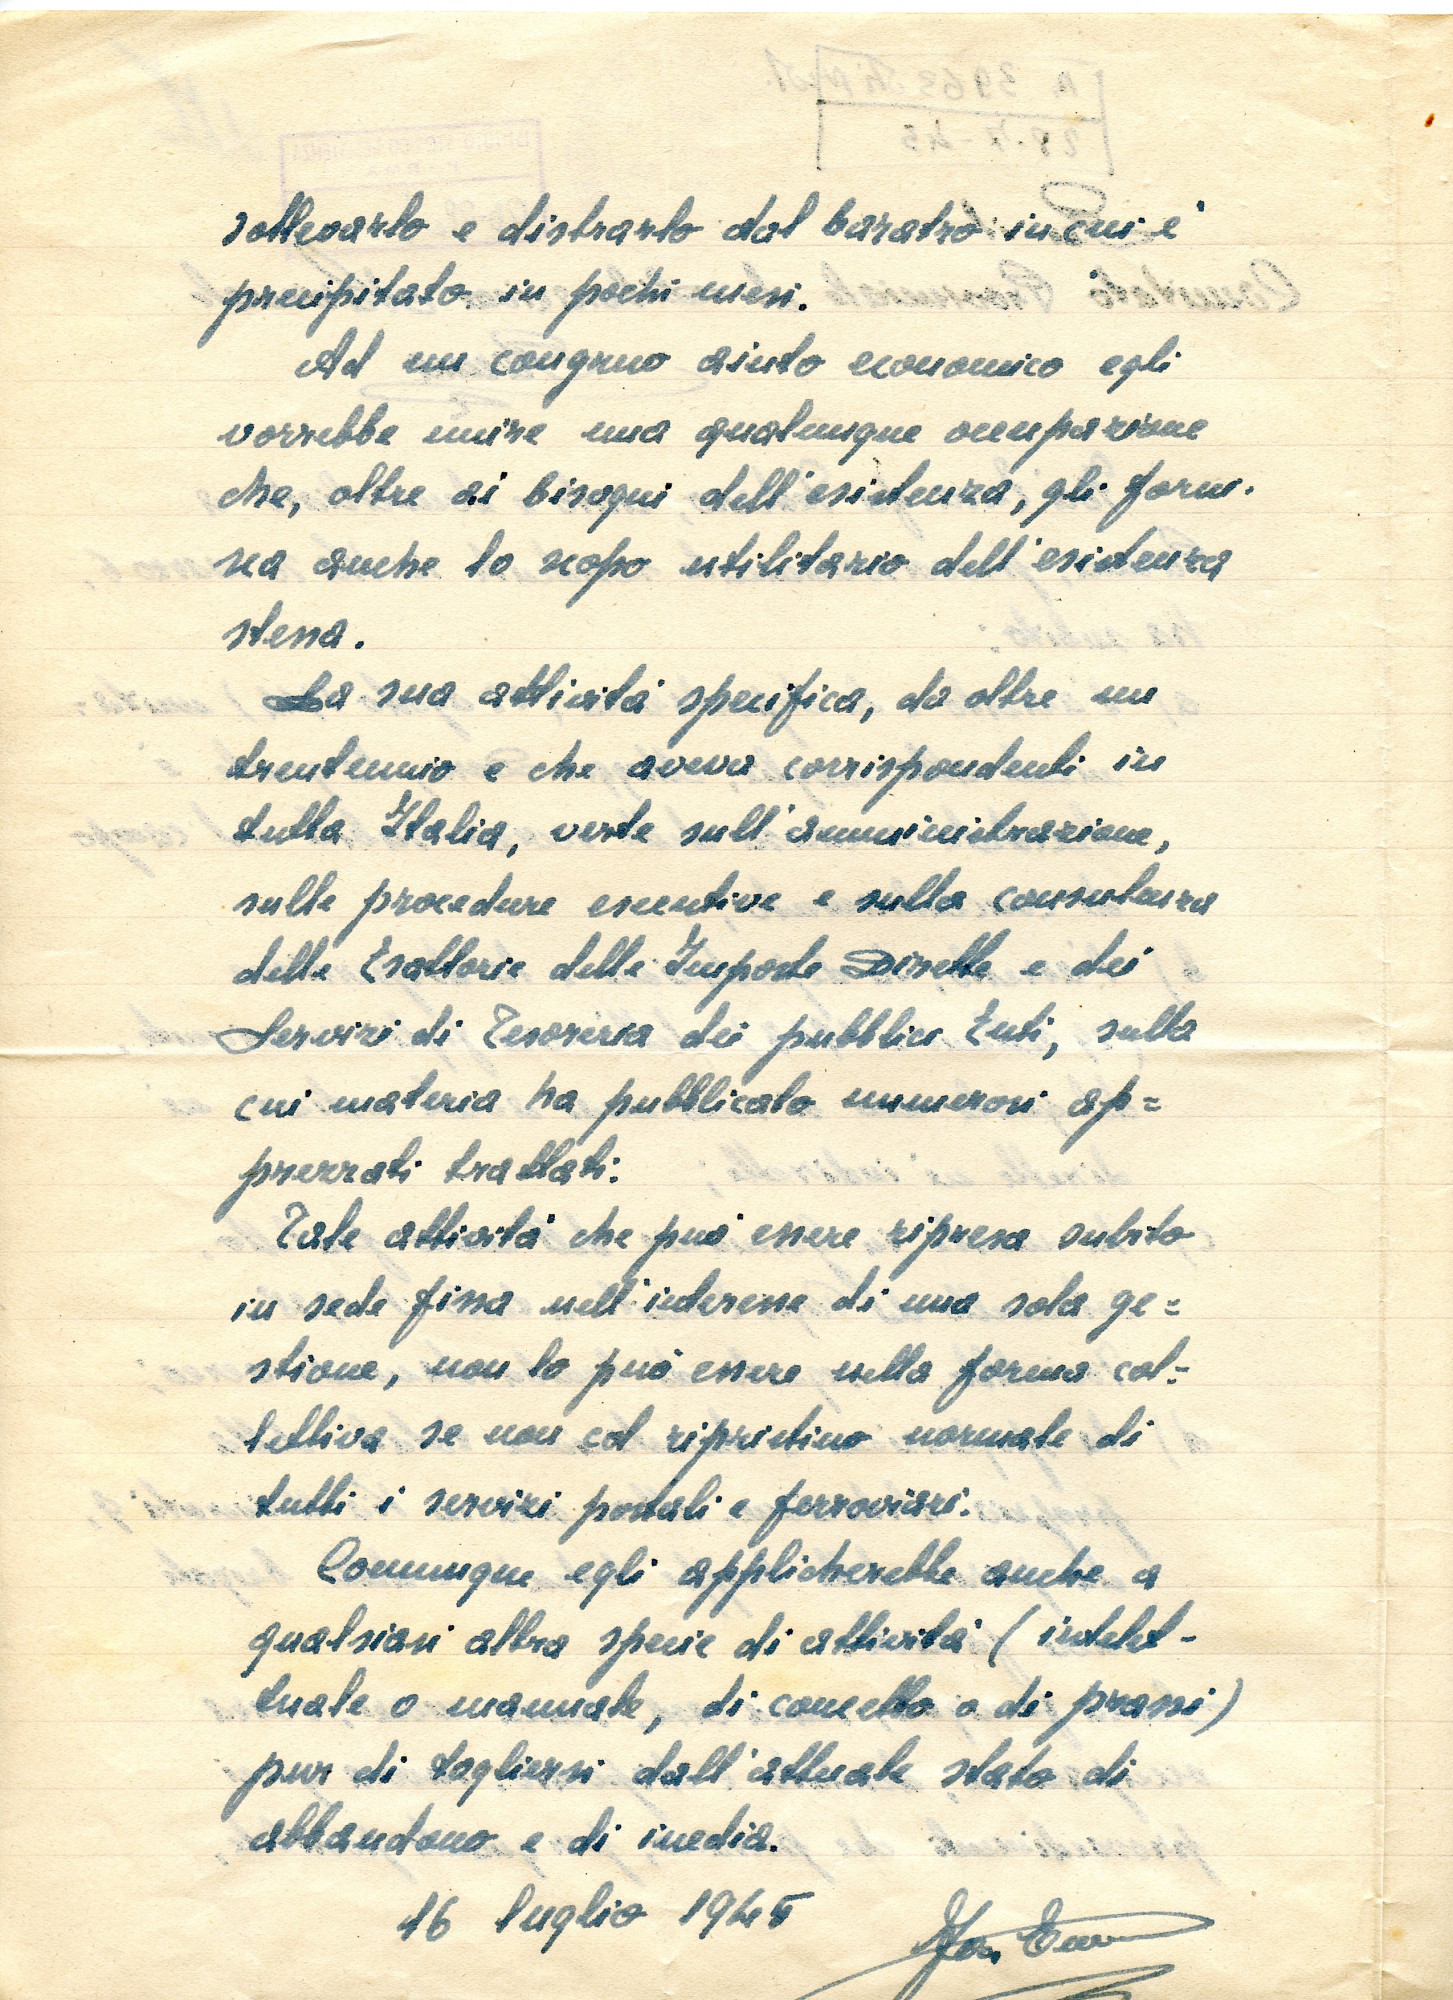 sollevarlo e distrarlo dal baratro in cui è
precipitato in pochi mesi.
Ad un congruo aiuto economico egli
vorrebbe unire una qualunque occupazione
che, oltre ai bisogni dell'esistenza, gli forni-
sca anche lo scopo utilitario dell'esistenza
stessa.
La sua attività specifica, da oltre un
trentennio e che aveva corrispondenti in
tutta Italia, verte sull'amministrazione,
sulle procedure esecutive e sulla consulenza
delle Esattorie delle Imposte Dirette e dei
Servizi di Tesoreria dei pubblici Enti, sulla
cui materia ha pubblicato numerosi ap=
prezzati trattati.
Tale attività che può essere ripresa subito
in sede fissa nell'interesse di una sola ge=
stione, non lo può essere nella forma col=
lettiva se non col ripristino normale di
tutti i servizi postali e ferroviari.
Comunque egli applicherebbe anche a
qualsiasi altra specie di attività (intelet-
tuale o manuale, di concetto o di prassi)
pur di togliersi dall'attuale stato di
abbandono e di inedia.
16 luglio 1945